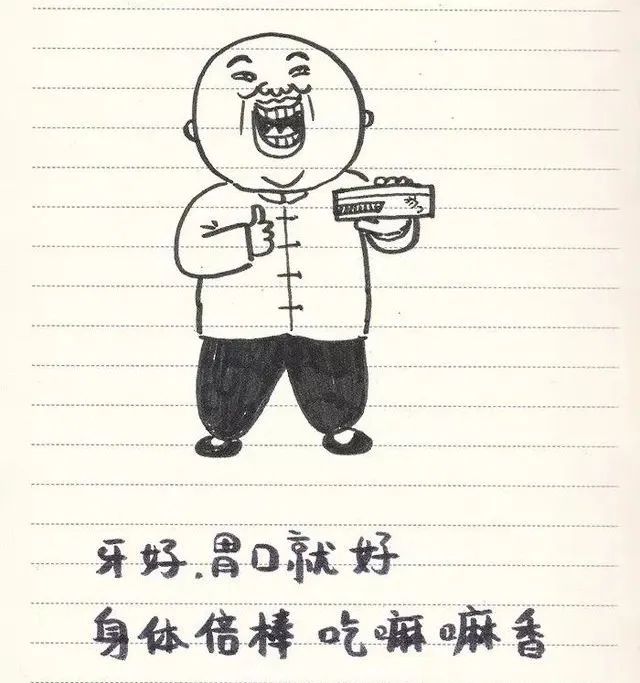 牙好.胃口就好
身体倍棒 吃嘛嘛香